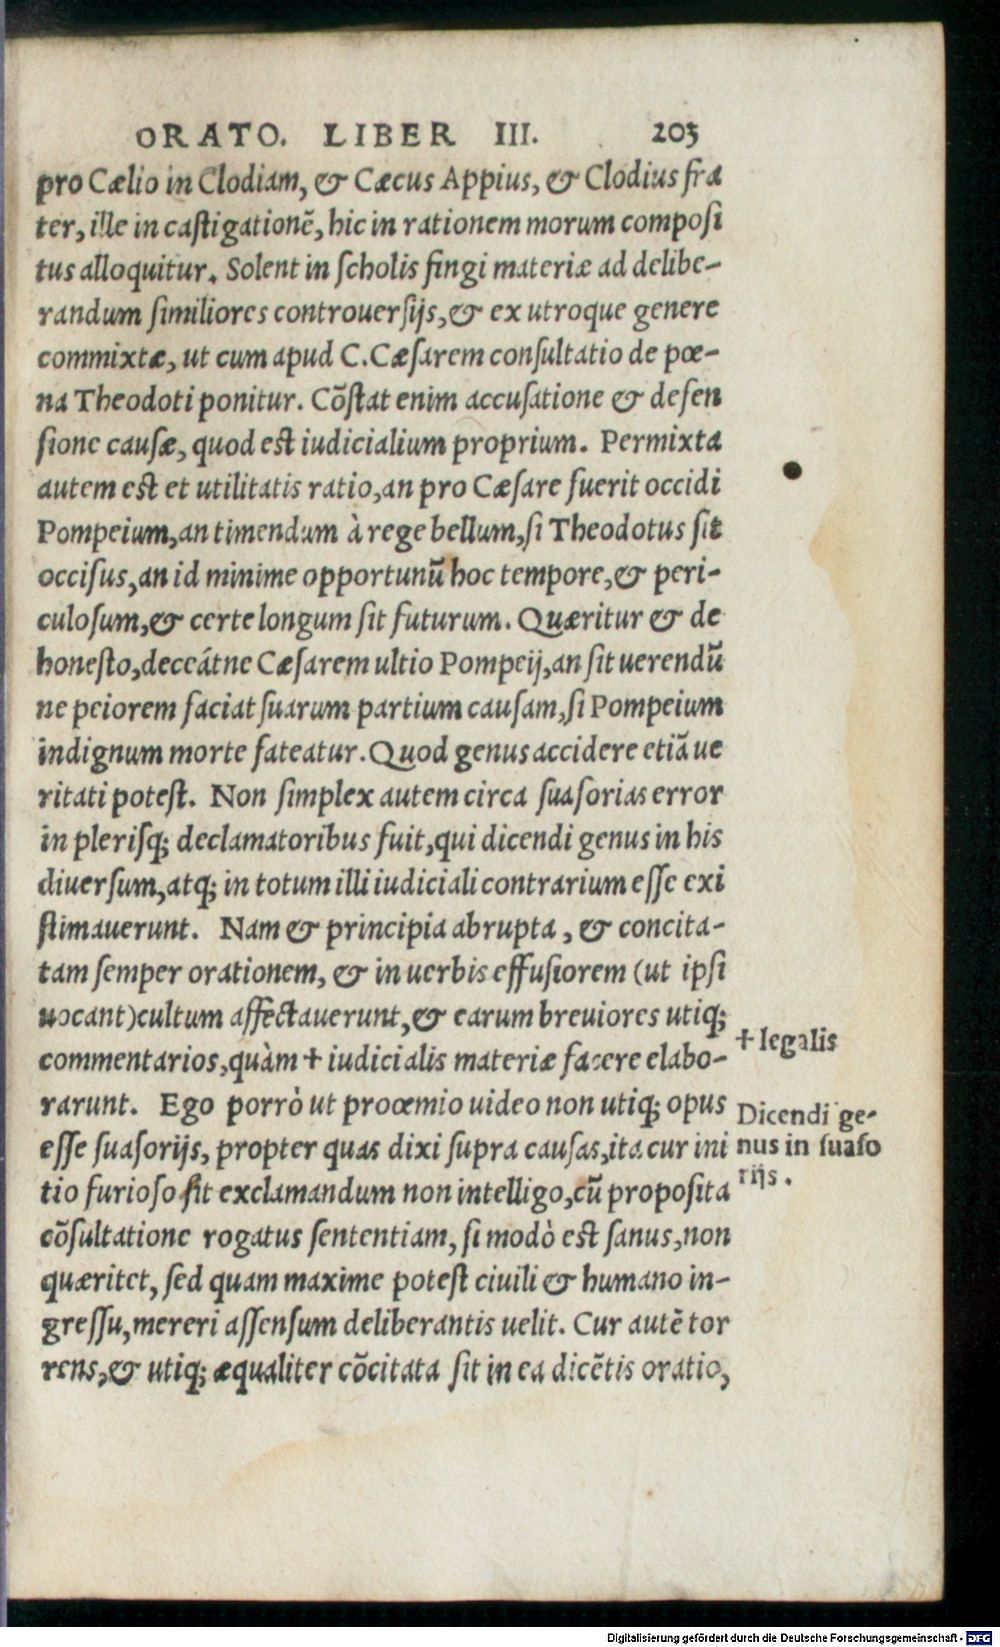 ORATO. LIBER III. 203
pro Cælio in Clodiam, & Cæcus Appius, & Clodius fra
ter, ille in castigationē, hic in rationem morum composi
tus alloquitur. Solent in scholis fingi materiæ ad delibe-
randum similiores controuersijs, & ex utroque genere
commixtæ, ut cum apud C.Cæsarem consultatio de pœ-
na Theodoti ponitur. Cōstat enim accusatione & defen
sione causæ, quod est iudicialium proprium. Permixta
autem est et utilitatis ratio, an pro Cæsare fuerit occidi
Pompeium, an timendum à rege bellum, si Theodotus sit
occisus, an id minime opportunū hoc tempore, & peri-
culosum, & certe longum sit futurum. Quæritur & de
honesto, deceátne Cæsarem ultio Pompeij, an sit uerendū
ne peiorem faciat suarum partium causam, si Pompeium
indignum morte fateatur. Quod genus accidere etiā ue
ritati potest. Non simplex autem circa suasorias error
in plerisq; declamatoribus fuit, qui dicendi genus in his
diuersum, atq; in totum illi iudiciali contrarium esse exi
stimauerunt. Nam & principia abrupta, & concita-
tam semper orationem, & in uerbis effusiorem (ut ipsi
uocant) cultum affectauerunt, & earum breuiores utiq;
commentarios, quàm + iudicialis materiæ facere elabo-
+ legalis
rarunt. Ego porrò ut procœmio uideo non utiq; opus
esse suasorijs, propter quas dixi supra causas, ita cur ini
Dicendi ge-
nus in suaso
rijs.
tio furioso sit exclamandum non intelligo, cū proposita
cōsultatione rogatus sententiam, si modò est sanus, non
quæritet, sed quam maxime potest ciuili & humano in-
gressu, mereri assensum deliberantis uelit. Cur autē tor
rens, & utiq; æqualiter cōcitata sit in ea dicētis oratio,
Digitalisierung gefördert durch die Deutsche Forschungsgemeinschaft - DFG